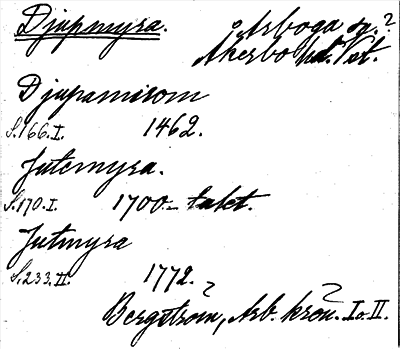 Djupmyra. Arboga sn.?
Åkerbo hd. Vstl.
Djupamirom
S.166.I. 1462.
Jutemyra.
S.170.I. 1700-talet.
Jutmyra
S.233.II. 1772.
Bergström, Arb. krön. I o. II.